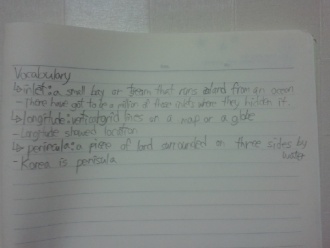 Vocabulary
↳ inlet: a small bay or stream that runs inland from an ocean
- There have got to be a million of those inlets where they hidden it.
↳ longitude: vertical grid lines on a map or a globe
- Longitude showed location
↳ peninsula: a piece of land surrounded on three sides by
water
- Korea is penisula